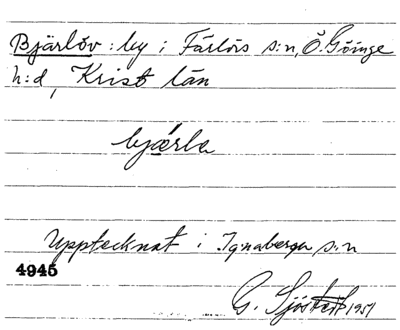 Bjärlöv: by i Färlövs s:n, Ö. Göinge
h:d, Krist län
bjærla
Upptecknat i Ignaberga s:n
4945
G. Sjöstedt 1951